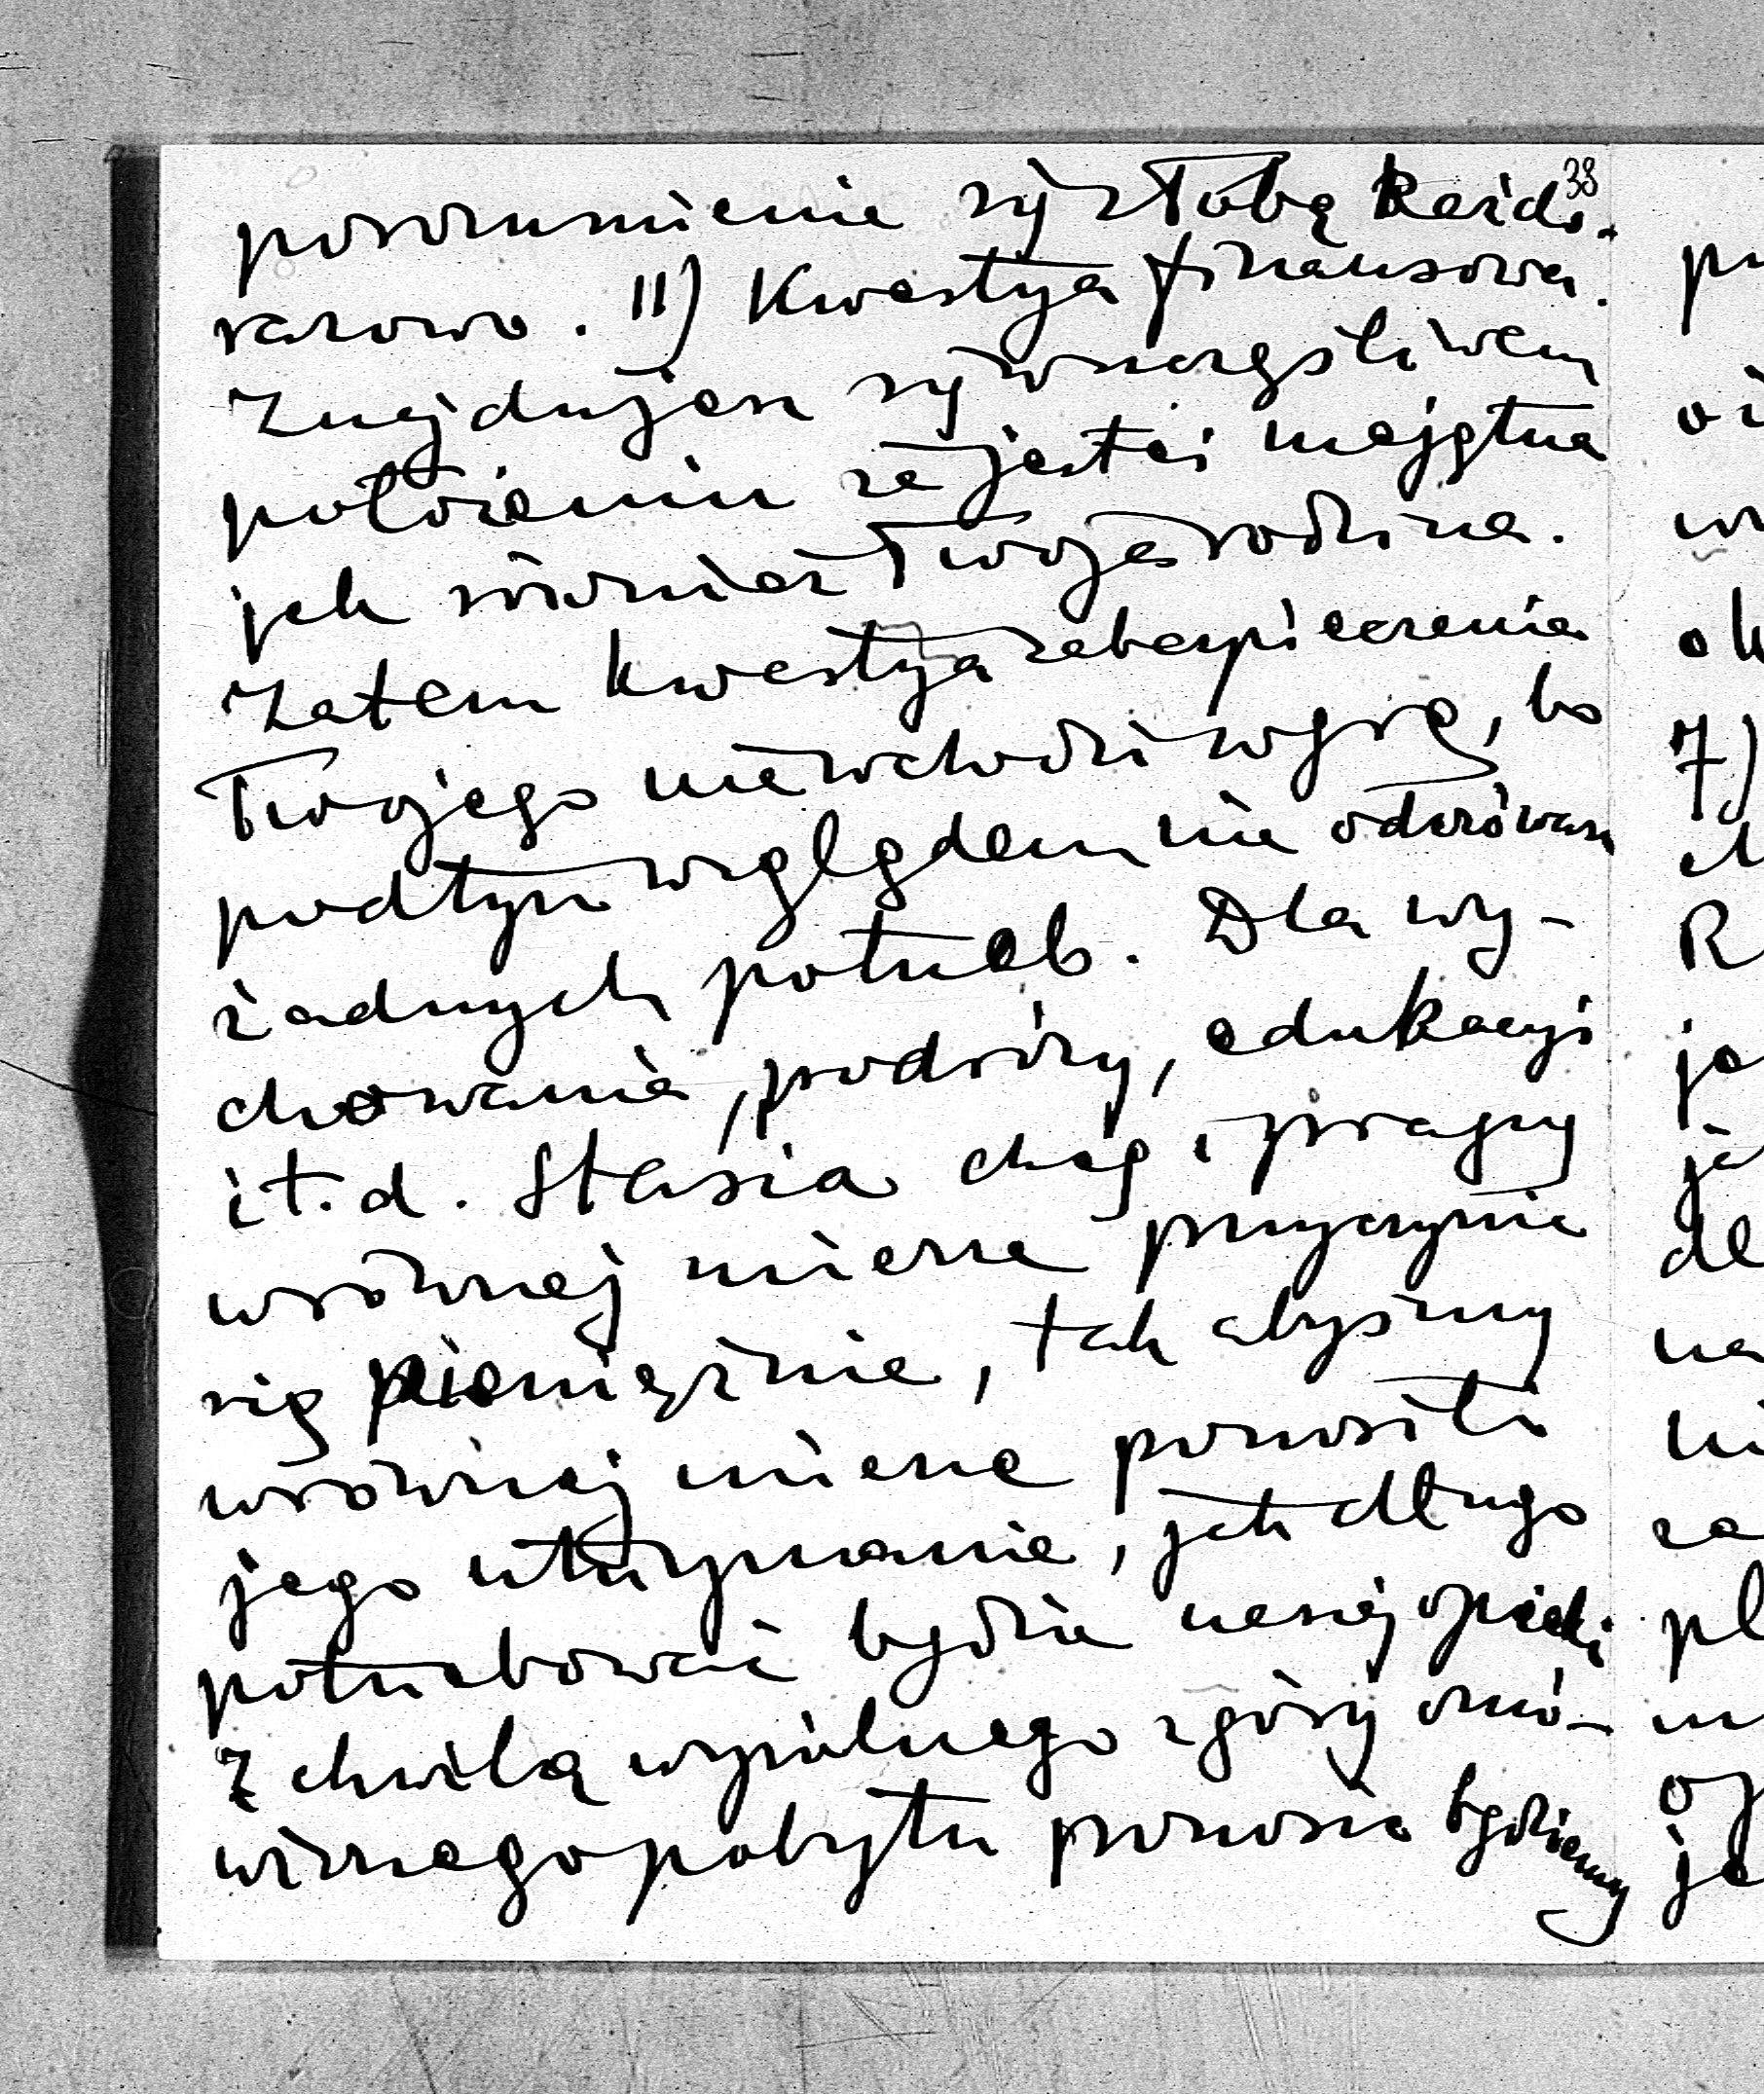 38
porozumienie się z Tobą każdo-
razowo. II) Kwestya finansowa.
Znajdujesz się w szczęśliwem
położeniu że jesteś majętna
jak również Twoja rodzina.
Zatem kwestya zabezpieczenia
Twojego nie wchodzi w grę, bo
pod tym względem nie odczuwasz
żadnych potrzeb. Dla wy-
chowania, podróży, edukacyi
i t. d. Stasia chcę i pragnę
w równej mierze przyczynić
się pieniężnie, tak abyśmy
w równej mierze ponosili
jego utrzymanie, jak długo
potrzebować będzie naszej opieki
Z chwilą wspólnego z góry omó-
wionego pobytu ponosić będziemy
pr
o
w
ok
7)
R
j
de
na
ni
za
pl
m
op
je